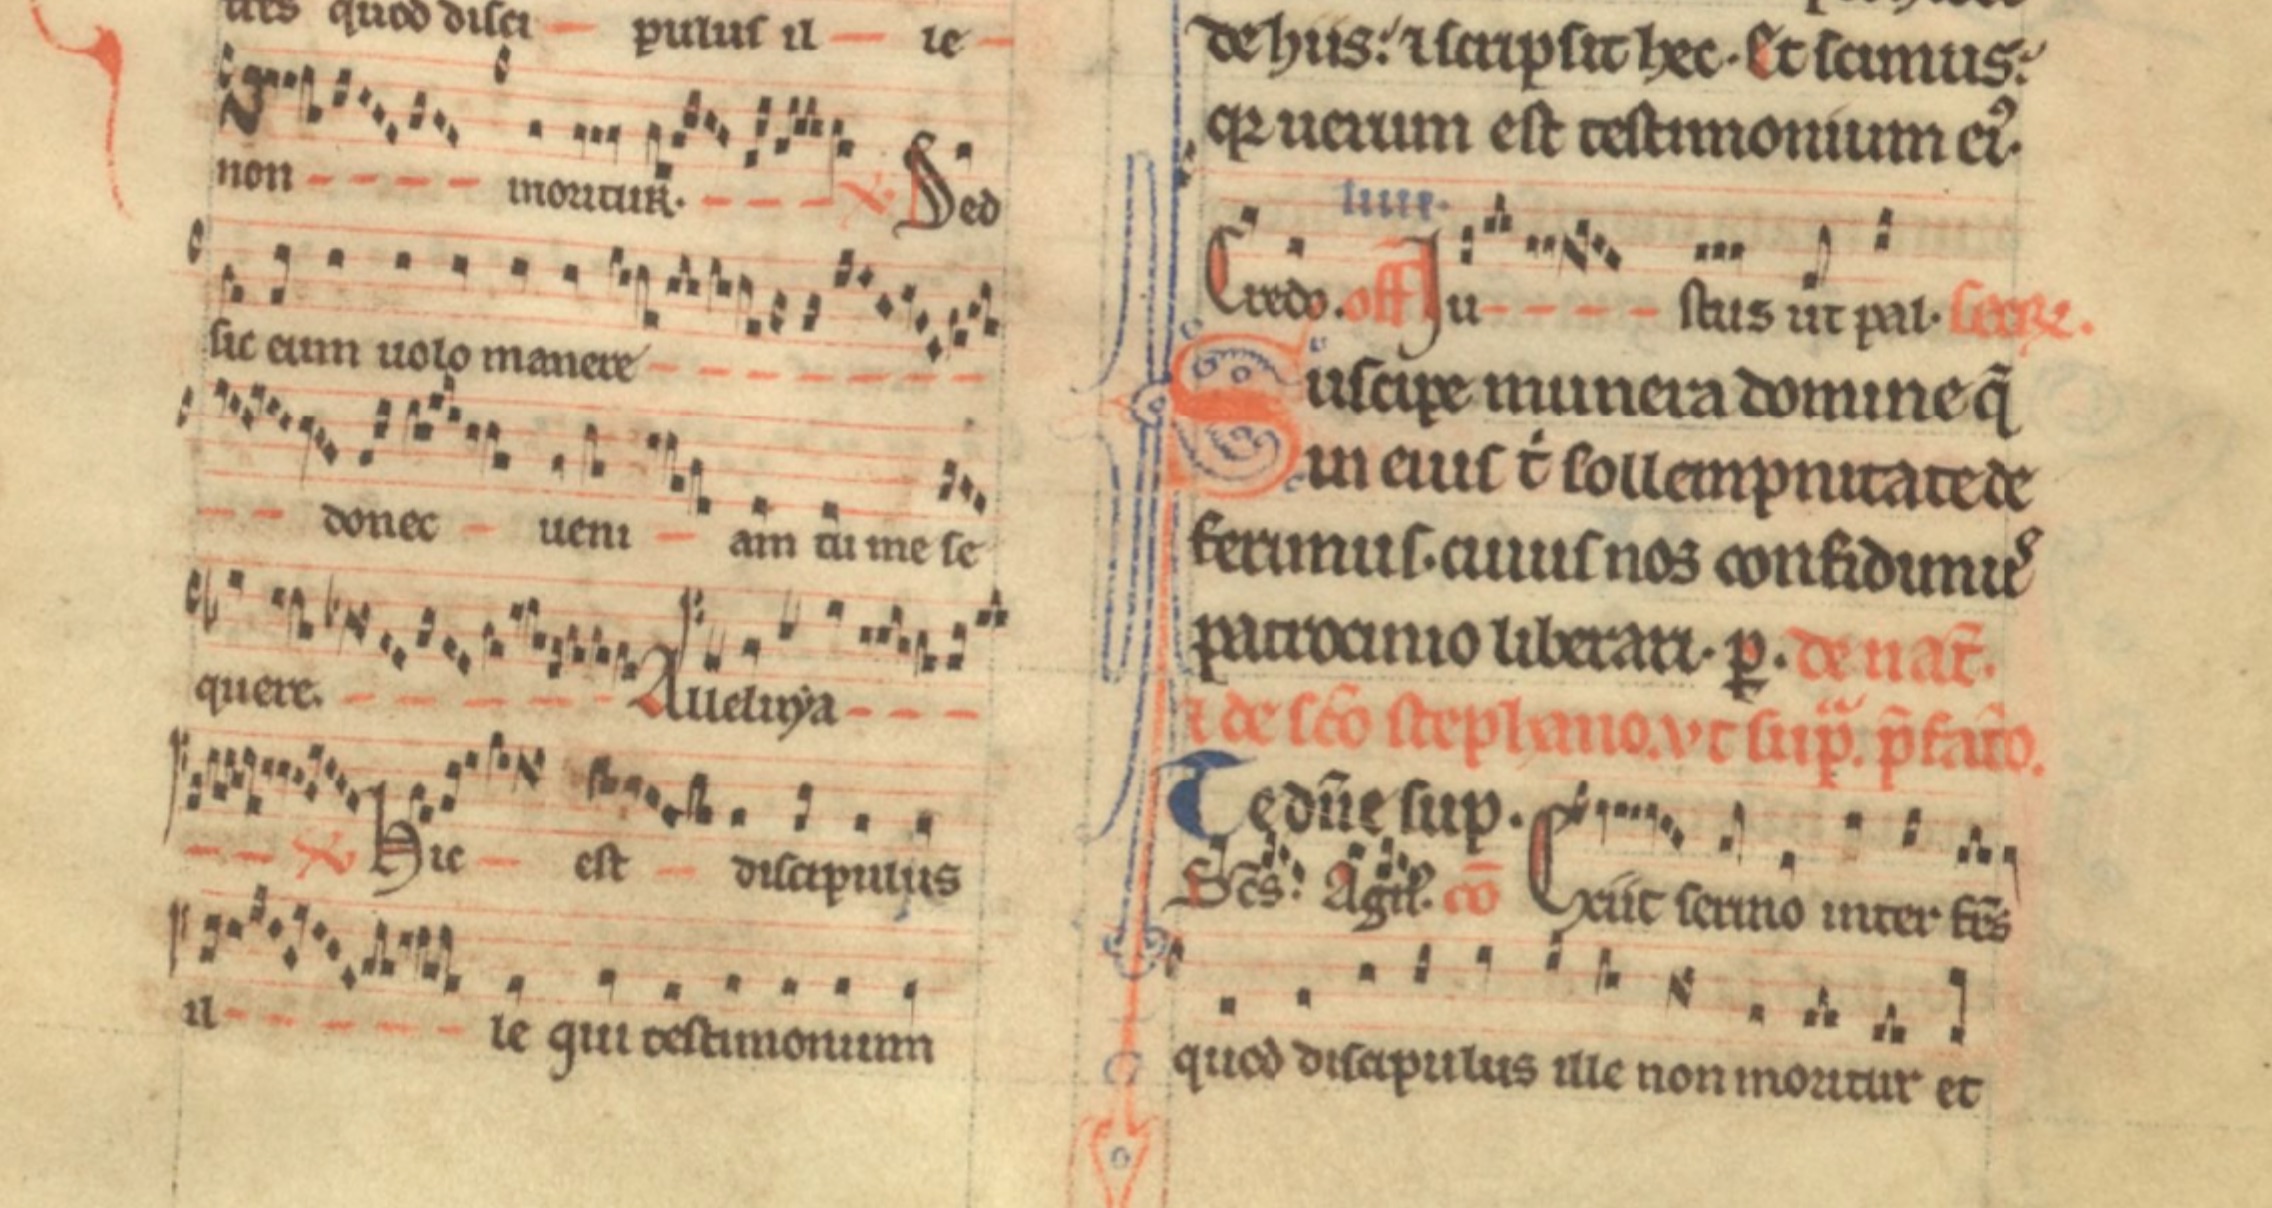 quod disci – pulus il – le –
non – – – – moritur. – – – – ℣ Sed
sic eum uolo manere – – – – – – – –
– – donec – ueni – am tu me se
quere. – – – – – – Alleluya – – –
– – ℣ Hic – est – discipulus
il – – – – – – le qui testimonium
de hiis: ⁊ scripsit hec. Et scimus:
qꝛ uerum est testimonium eiꝰ.
iiii.
Credo. off Iu – – – – stus ut pal. secre.
Suscipe munera domine q̄
in eius t̄ sollempnitate de
ferimus. cuius nos confidimus
patrocinio liberari. ꝑ. de nat̄.
⁊ de sc̄o stephano. vt sup̄. p̄fat̄o.
Te dn̄e sup.
Sc̄s. Agn̄. cō Exiit sermo inter fr̄s
quod discipulus ille non moritur et